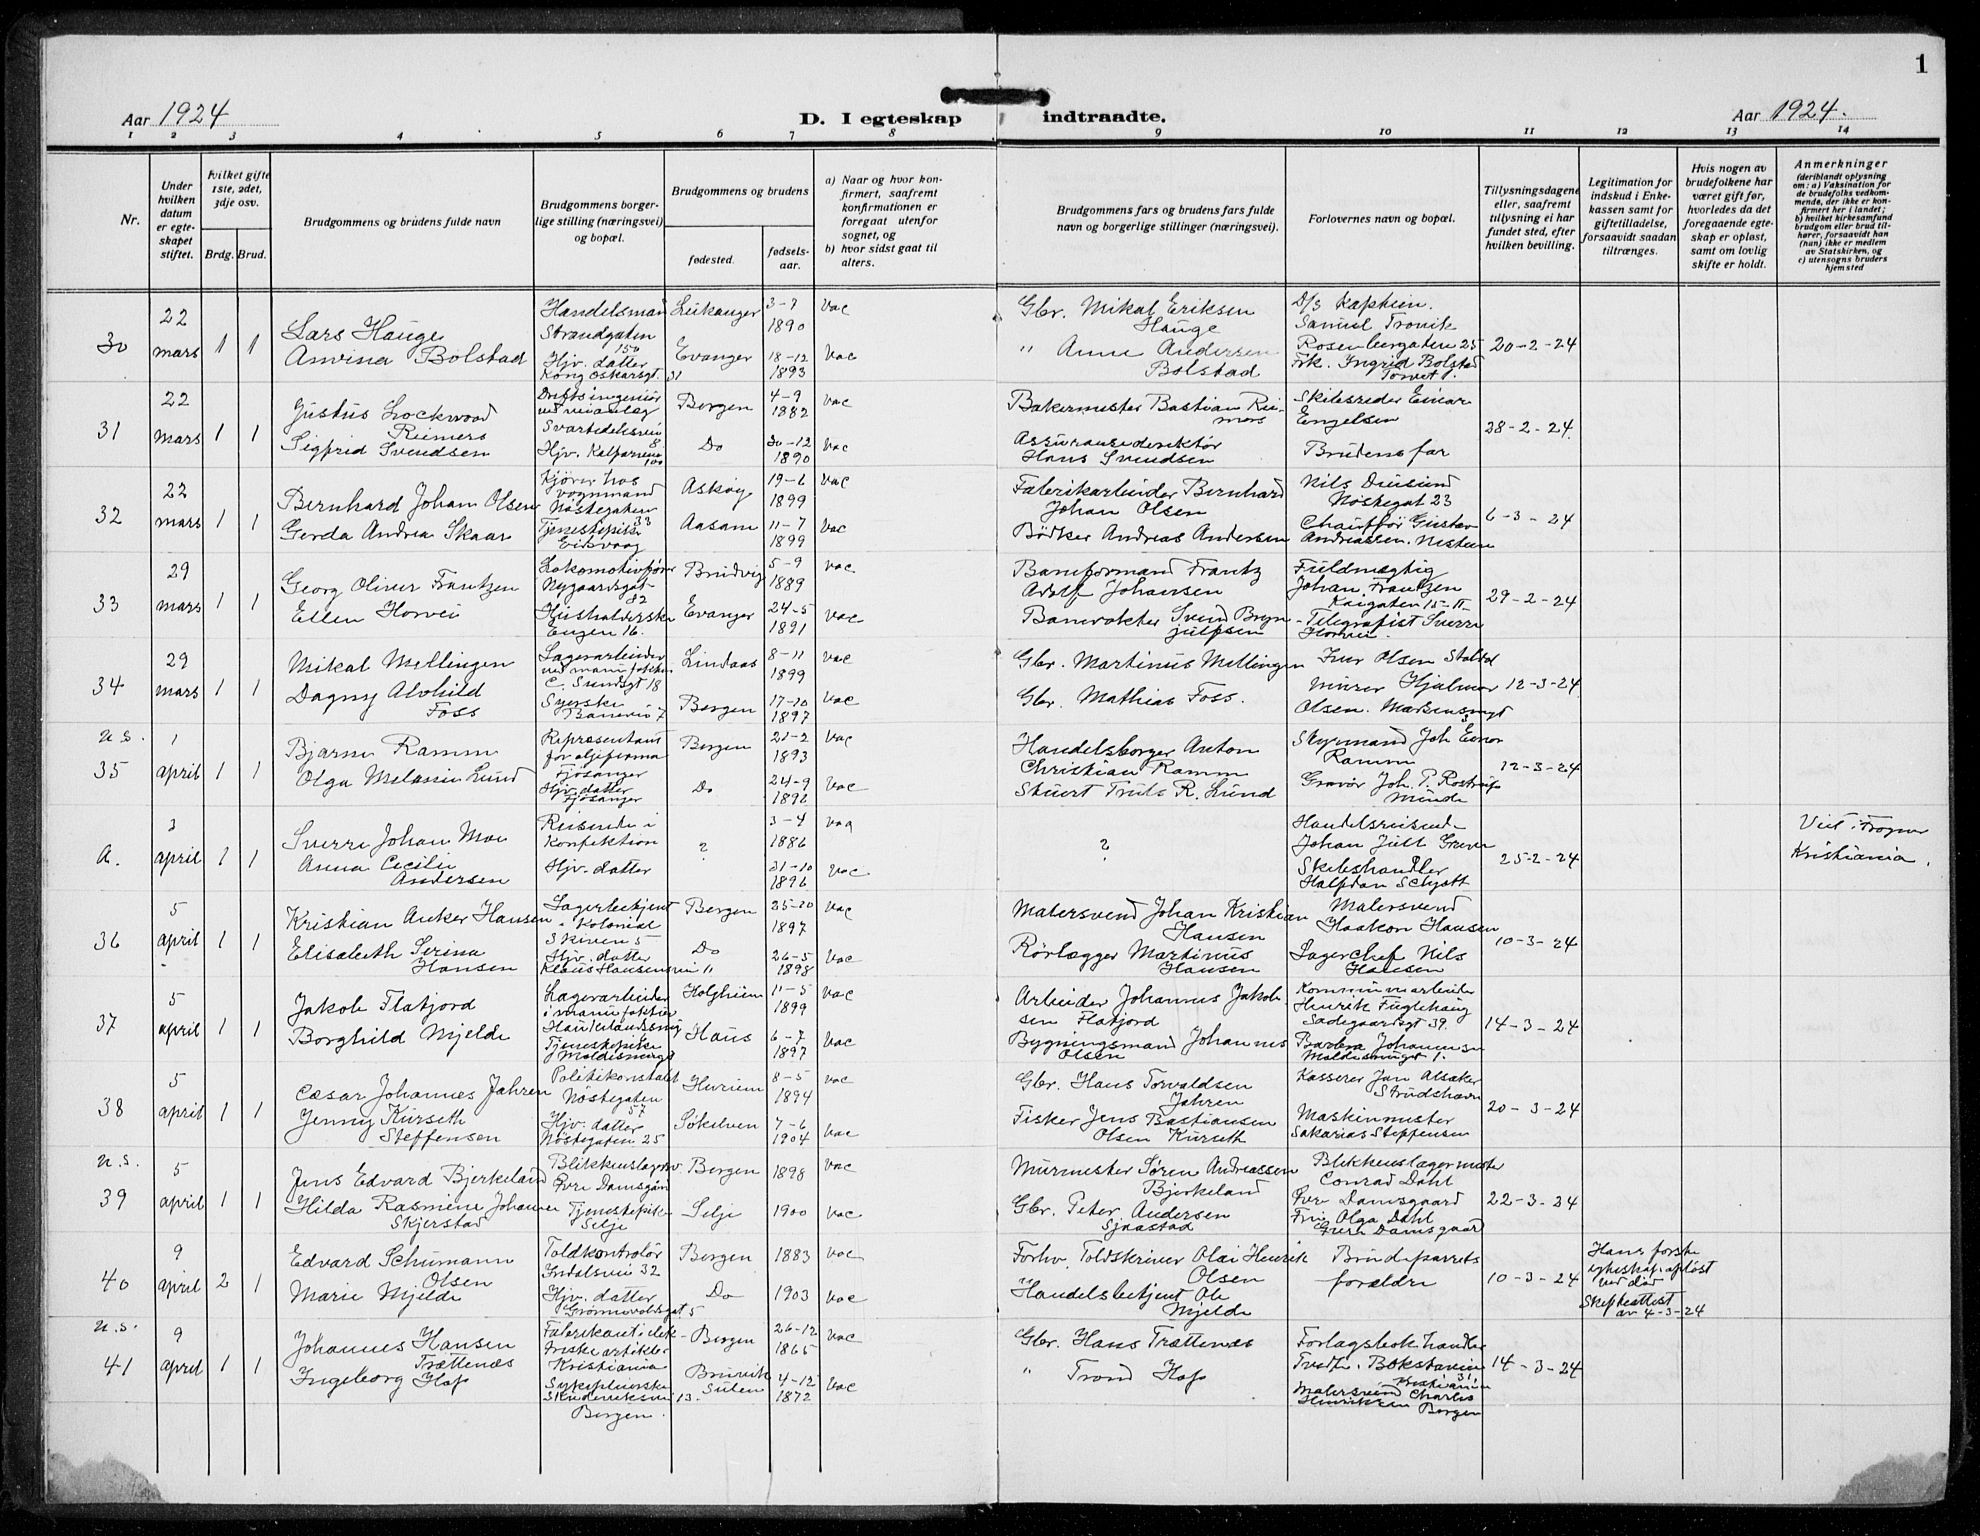 1
Aar 1924
D. I egteskap indtraadte.
Aar 1924.
1 2 3 4 5 6 7 8 9 10 11 12 13 14
Nr.
Under hvilken datum er egteskapet stiftet.
hvilket gifte 1ste, 2det, 3dje osv.
Brdg. Brud.
Brudgommens og brudens fulde navn
Brudgommens borgerlige stilling (næringsvei) og bopæl.
Brudgommens og brudens
fødested.
fødselsaar.
a) Naar og hvor konfirmert, saafremt konfirmationen er foregaat utenfor sognet, og
b) hvor sidst gaat til alters.
Brudgommens fars og brudens fars fulde navn og borgerlige stillinger (næringsvei).
Forlovernes navn og bopæl.
Tillysningsdagene eller, saafremt tillysning ei har fundet sted, efter hvilken bevilling.
Legitimation for indskud i Enkekassen samt for giftetilladelse, forsaavidt saadan tiltrænges.
Hvis nogen av brudefolkene har været gift før, hvorledes da det foregaaende egteskap er opløst, samt om lovlig skifte er holdt.
Anmerkninger
(deriblandt oplysning om: a) Vaksination for de brudefolks vedkommende, der ikke er konfirmert her i landet;
b) hvilket kirkesamfund brudgom eller brud tilhører, forsaavidt han (hun) ikke er medlem av Statskirken, og
c) utensogns bruders hjemsted
30 22 mars 1 1
Lars Hauge
Anvina Bolstad
Handelsmand Strandgaten 150
Hjv. datter Kong Oskarsgt. 31
Leikanger 3-7 1890 Vac
Evanger 18-12 1893 Vac
Gbr. Mikal Eriksen Hauge
" Anne Andersen Bolstad
D/s Kaptein. Samuel Tronvik Rosenbergaten 25
Frk. Ingrid Bolstad Torvet 1.
20-2-24
31 22 mars 1 1
Justus Lockwood Reimers
Sigfrid Svendsen
Driftsingeniør ved veianlæg Svartediksvei 8
Hjv. Kalfarveien 100
Bergen 4-9 1882 Vac
Do 30-12 1890 Vac
Bakermester Bastian Reimers
Assurancedirektør Hans Svendsen
Skibsreder Einar Engelsen
Brudens far
28-2-24.
32 22 mars 1 1
Bernhard Johan Olsen
Gerda Andrea Skaar
Kjører hos vognmand Nøstegaten 33
Tjenestepike Eidsvaag
Askøy 19-6 1899 Vac
Aasam 11-7 1899 Vac
Fabrikarbeider Bernhard Johan Olsen
Bødker Andreas Andersen
Nils Nøstegat 23
Chauffør Gustav Andreassen. Nesttun
6-3-24
33 29 mars 1 1
Georg Oliver Frantzen
Ellen Horvei
Lokomotivfører Nygaardsgat- 82
Husholderske Engen 16.
Brudvig 5-9 1889 Vac
Evanger 24-5 1891 Vac
Baneformand Frantz Adolf Johansen
Banevokter Svend Brynjulfsen
Fuldmægtig Johan Frantzen Kaigaten 15-II
Telegrafist Sverre Horvei.
29-2-24
34 29 mars 1 1
Mikal Mellingen
Dagny Alvhild Foss
Lagerarbeider ved manufaktur C. Sundsgt 18
Syerske Banevei 7
Lindaas 8-11 1899 Vac
Bergen 17-10 1897 Vac
Gbr. Martinus Mellingen
Gbr. Mathias Foss.
Iver Olsen
Murer Hjalmar Olsen.
12-3-24
u.s.
35 1 april 1 1
Bjarne Ramm
Olga Melanie Lund
Repræsentant for oljefirma Fjøsanger
Hjv. datter Fjøsanger
Bergen 21-2 1893 Vac
Do 24-9 1892 Vac
Handelsborger Anton Christian Ramm
Skuert Truls R. Lund
Styrmand Joh Ramm
Gravør Joh. P. Rostrup Minde
12-3-24
a. 3 april 1 1
Sverre Johan Moe
Anna Cecilie Andersen
Reisende i Konfektion
Hjv. datter
? 3-4 1886 Vac
21-10 1896 Vac
?
Handelsreisende Johan Juell Greve
Skibshandler Halfdan Schjøtt
25-2-24
Viet i Frogner Kristiania.
36 5 april 1 1
Kristian Anker Hansen
Elisabeth Serina Hansen
Lagerbetjent i Kolonial Skiven 5
Hjv. datter Klaus Hansensvei 11
Bergen 25-10 1897 Vac
Do 26-5 1898 Vac
Malersvend Johan Kristian Hansen
Rørlægger Martinus Hansen
Malersvend Haakon Hansen
Lagerchef Nils Hansen
10-3-24
37 5 april 1 1
Jakob Flatjord
Borghild Mjelde
Lagerarbeider i manufaktur
Tjenestepike Moldesmuget
Holgheim 11-5 1899 Vac
Haus 6-7 1897 Vac
Arbeider Johannes Jakobsen Flatjord
Bygningsmand Johannes Olsen
Kommunearbeider Henrik Fuglehaug Ladegaardsgt 39.
Barbra Johannesen Moldesmuget 1.
14-3-24
38 5 april 1 1
Cæsar Johannes Jahren
Jenny Kurseth Steffensen
Politikonstabel Nøstegaten 57
Hjv. datter Nøstegaten 25
Hurum 8-5 1894 Vac
Søkelven 7-6 1904 Vac
Gbr. Hans Torvaldsen Jahren
Fisker Jens Bastiansen Olsen Kurseth
Kasserer Jan Alsaker Strudshavn
Maskinmester Sakarias Steffensen
20-3-24
u.s.
39 5 april 1 1
Jens Edvard Bjerkeland
Hilda Rasmine Johanne Skjerstad
Blikkenslagersv. Øvre Damsgård
Tjenestepike Selje
Bergen 1898 Vac
Selje 1900 Vac
Murmester Søren Andreassen Bjerkeland
Gbr. Peter Andersen Sjaastad
Blikkenslagermester Conrad Dahl Øvre Damsgaard
Fru Olga Dahl Øvre Damsgaard
22-3-24
40 9 april 2 1
Edvard Schumann Olsen
Marie Mjelde
Toldkontrolør Indalsvei 32
Hjv. datter Grønnevoldsgat 5
Bergen 1883 Vac
Do 1903 Vac
Forhv. Toldskriver Olai Henrik Olsen
Handelsbetjent Ole Mjelde
Brudeparrets forældre
10-3-24
Hans første egteskap opløst ved død
Skifteattest av 4-3-24
u.s.
41 9 april 1 1
Johannes Hansen Trættenæs
Ingeborg Hop
Fabrikant i elektriske artikler Kristiania
Sykepleierske 13. Bergen.
Bergen 26-12 1865 Vac
Bruvik Sulen 4-12 1872 Vac
Gbr. Hans Trættenæs
" Trond Hop
Forlagsbokhandler Tvedt. Bokstavein 31 Kristiania
Malersvend Charles Henriksen Bergen
14-3-24